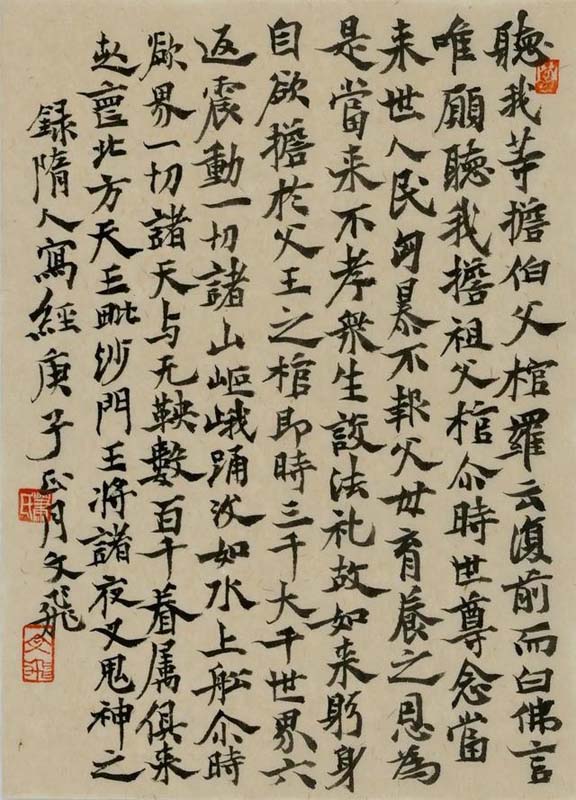 聽我等擔伯父棺羅云復前而白佛言
唯願聽我擔祖父棺尒時世尊念當
来世人民㓙暴不報父母育養之恩為
是當来不孝衆生設法礼故如来躬身
自欲擔於父王之棺即時三千大千世界六
返震動一切諸山岠峨踊没如水上舩尒時
欲界一切諸天与无鞅數百千眷属俱来
赴䘮北方天王毗沙門王将諸夜叉鬼神之
録隋人寫經庚子正月文飛
蕭氏
文飛